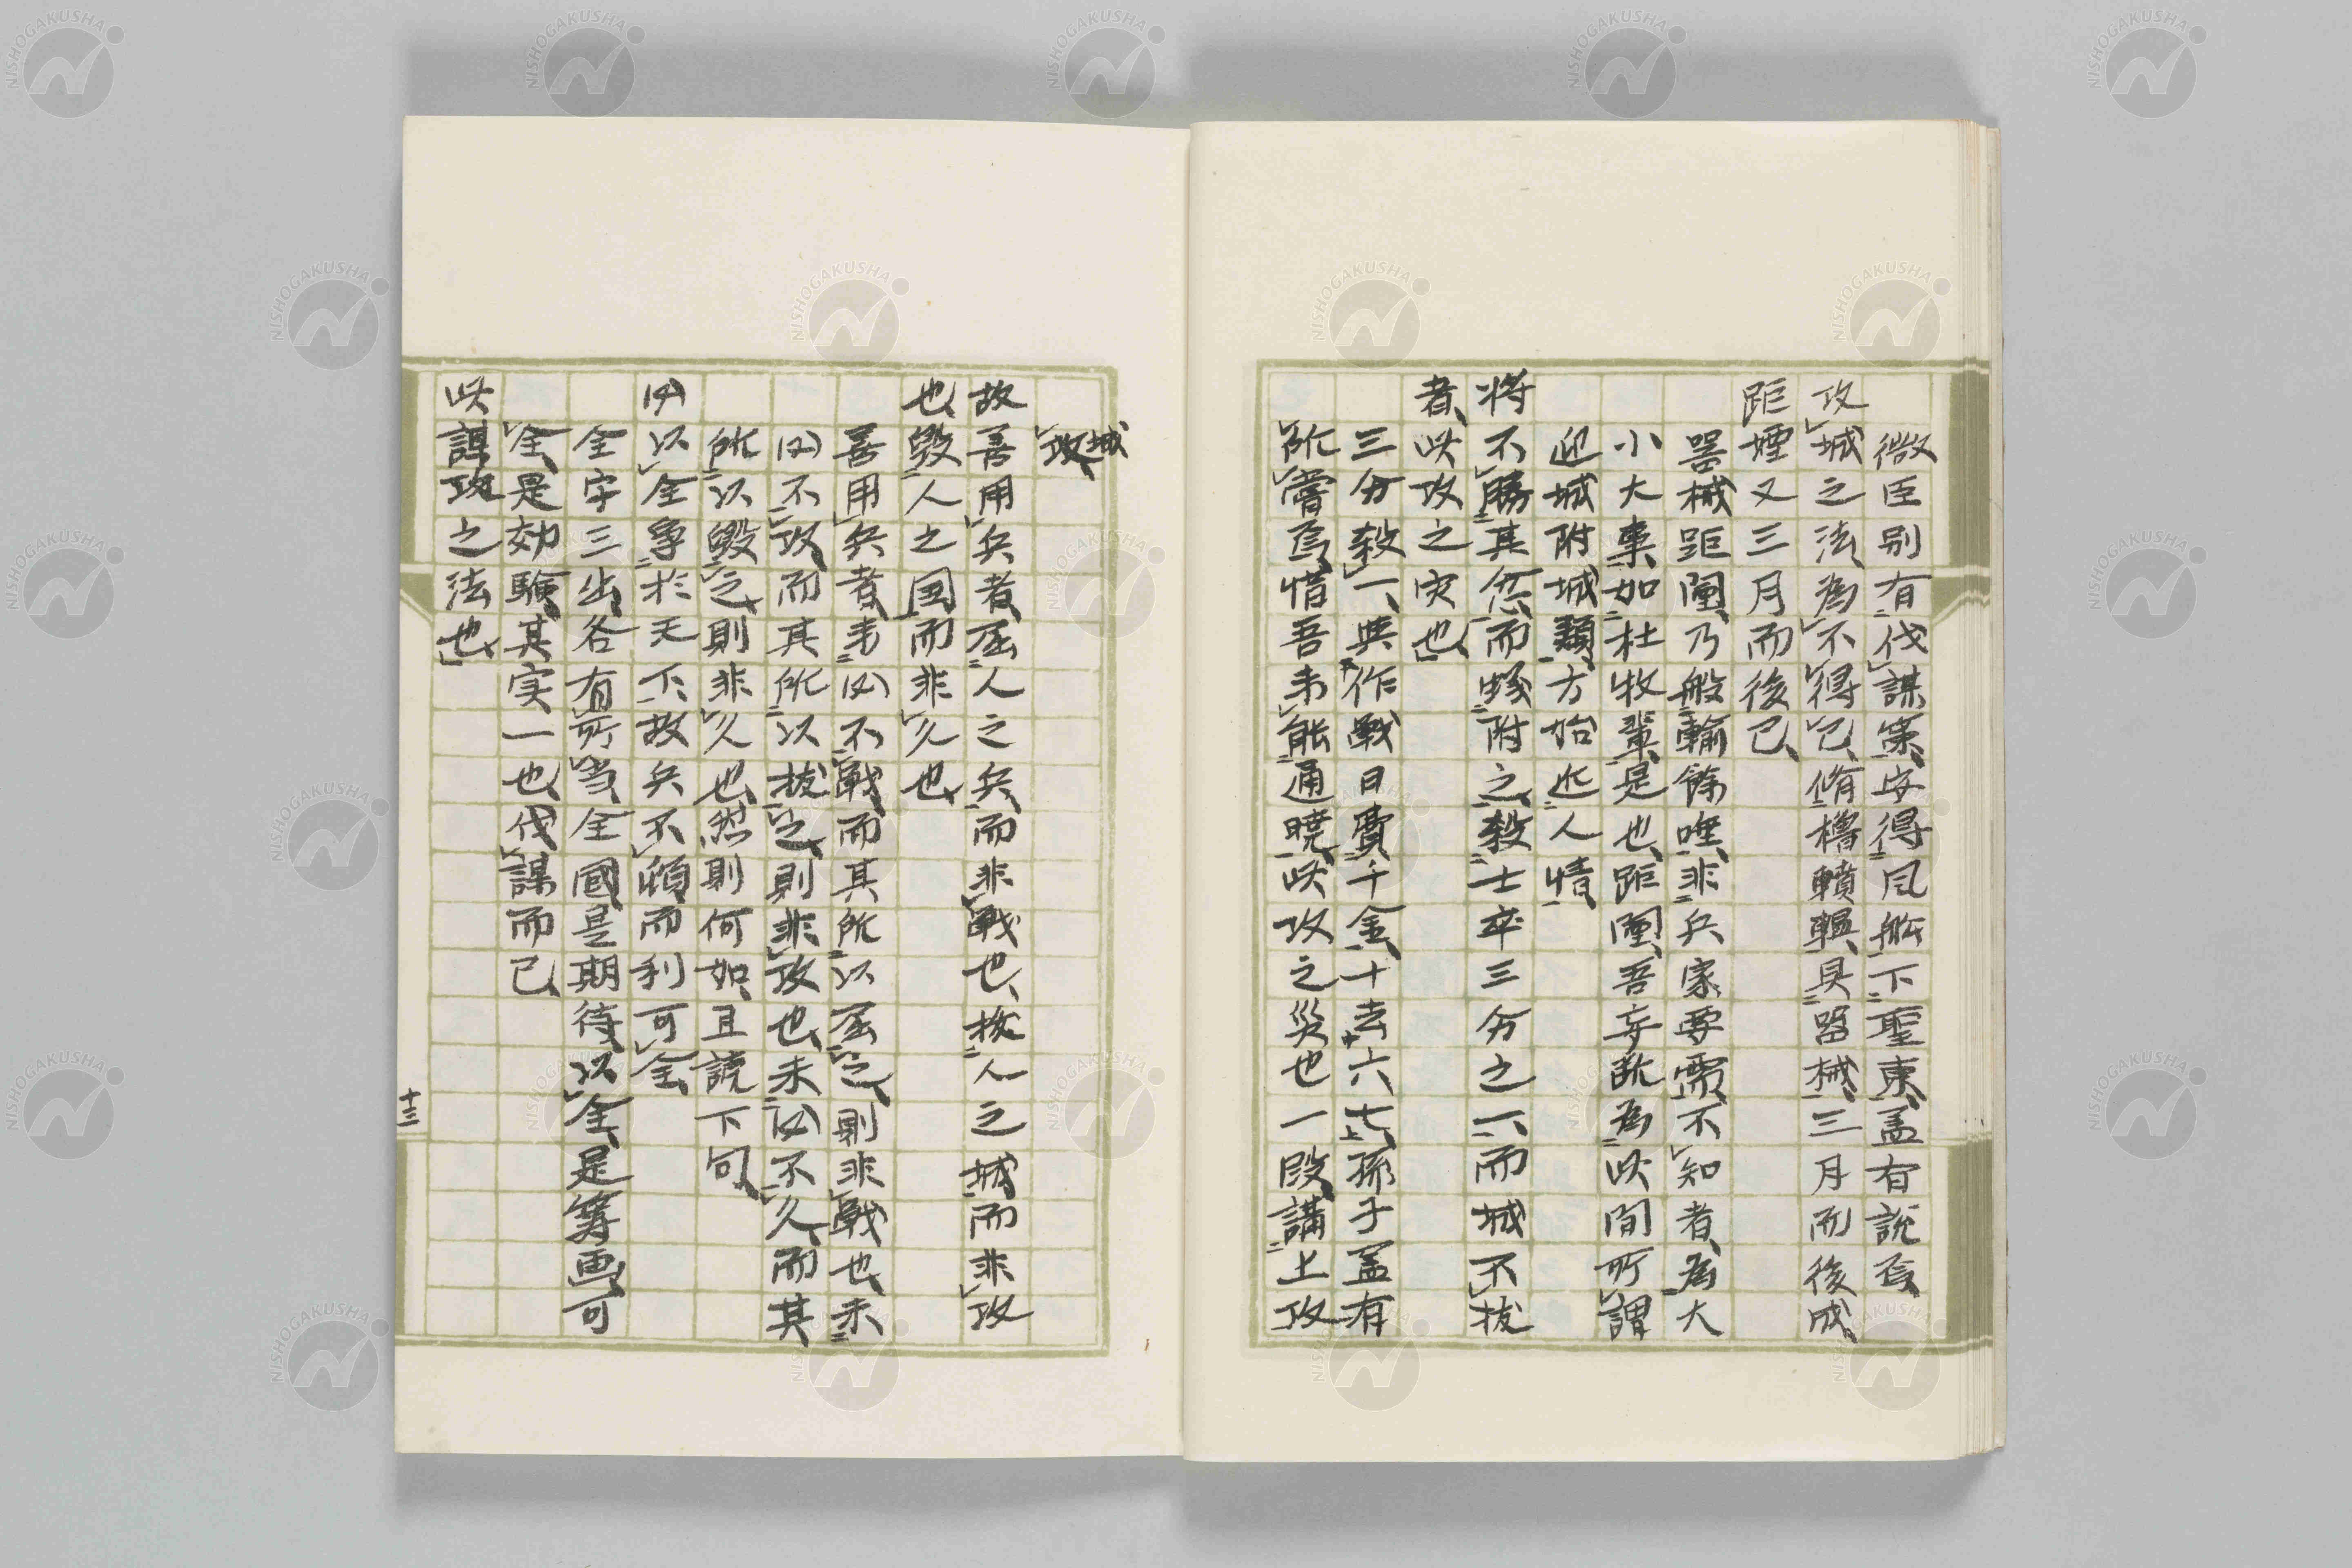 微臣別有伐謀策安得凡船下聖東盖有説焉
攻城之法為不得已脩櫓轒轀具器械三月而後成
距堙又三月而後已
器械距闉乃般輸餘唾非兵家要需不知者為大
小大事如杜牧輩是也距闉吾寺説為此間所謂
迎城附城類方始近人情
将不勝其忿而蟻附之殺士卒三分之一而城不抜
者此攻之灾也
三分殺一與作戰日費千金十去六七孫子盖有
所嘗焉惜吾未能通曉此攻之災也一段講上攻
城攻
故善用兵者屈人之兵而非戰也抜人之城而非攻
也毀人之国而非久也
善用兵者未必不戰而其所以屈之則非戰也未
必不攻而其所以抜之則非攻也未必不久而其
所以毀之則非久也然則何如且読下句
必以全爭於天下故兵不頓而利可全
全字三出各有所当全國是期待以全是籌画可
全是効驗其実一也伐謀而已
此謀攻之法也
十三
NISHOGAKUSHA